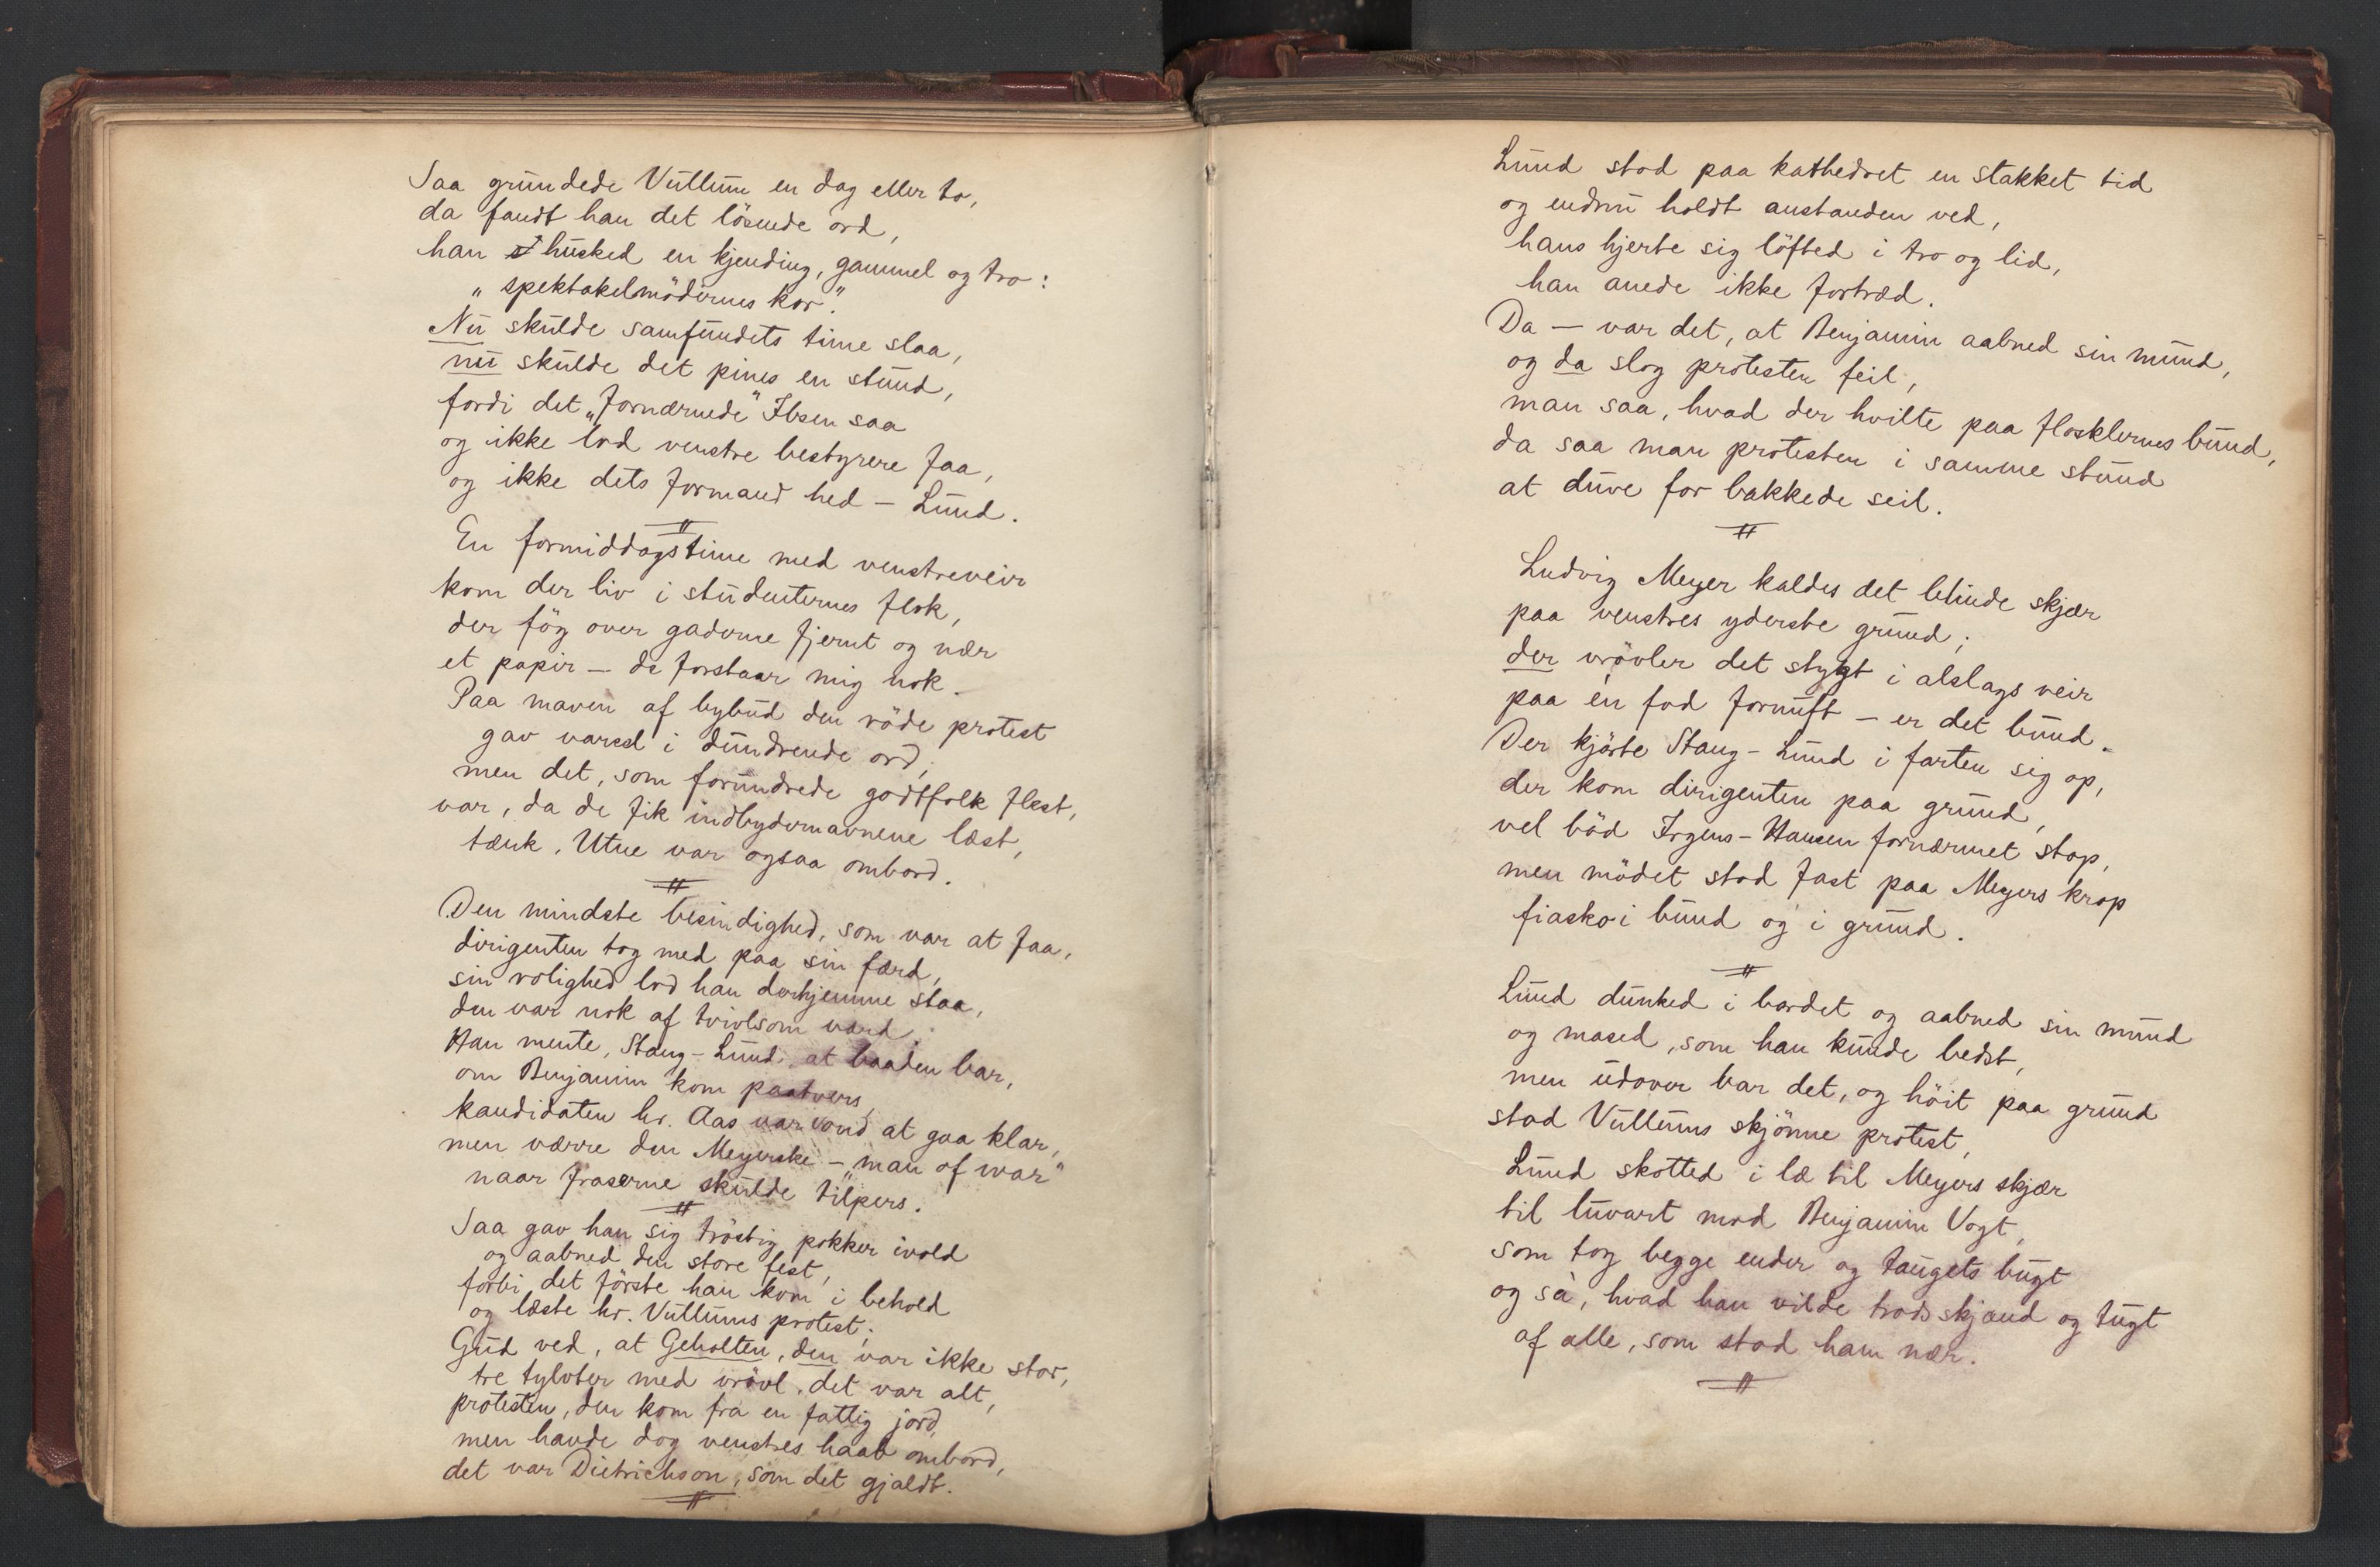 Saa grundede Vullum en dag eller to,
da fandt han det lösende ord,
han husked en kjending, gammel og tro:
„spektakelmödernes kor."
Nu skulde samfundets time slaa,
nu skulde det pines en stund,
fordi det „fornærmede" Ibsen saa
og ikke lod venstre bestyrere faa,
og ikke dets formand hed – Lund.
En formiddagstime med venstreveir
kom der liv i studenternes flok,
der fög over gaderne fjernt og nær
et papir – de forstaar mig nok.
Paa maven af bybud den röde protest
gav varsel i dundrende ord;
men det, som forundrede godtfolk flest,
var, da de fik indbydernavnene læst,
tænk, Utne var ogsaa ombord.
Den mindste besindighed, som var at faa,
dirigenten tog med paa sin færd,
sin rolighed lod han derhjemme staa,
den var nok af tvivlsom værd.
Han mente, Stang-Lund, at baaden bar,
om Benjamin kom paatvers,
kandidaten hr. Aas var vond at gaa klar,
men værre den Meyerske – „man of war"
naar fraserne skulde tilpers.
Saa gav han sig tröstig pokker ivold
og aabned den store fest,
forbi det förste han kom i behold
og læste hr. Vullums protest;
Gud ved, at Geholten, den var ikke stor,
tre tylvter med vrövl, det var alt,
protesten, den kom fra en fattig jord,
men havde dog venstres haab ombord,
det var Dietrichson, som det gjaldt.
Lund stod paa kathedret en stakket tid
og endnu holdt anstanden ved,
hans hjerte sig löfted i tro og lid,
han anede ikke fortræd.
Da – var det, at Benjamin aabned sin mund,
og da slog protesten feil,
man saa, hvad der hvilte paa flosklernes bund,
da saa man protesten i samme stund
at duve for bakkede seil.
Ludvig Meyer kaldes det blinde skjær
paa venstres yderste grund;
der vrövler det stygt i alslags veir
paa én fod fornuft – er det bund.
Der kjörte Stang-Lund i farten sig op,
der kom dirigenten paa grund,
vel böd Irgens-Hansen fornærmet stop,
men mödet stod fast paa Meyers krop
fiasko i bund og i grund.
Lund dunked i bordet og aabned sin mund
og mased, som han kunde bedst,
men udover bar det, og höit paa grund
stod Vullums skjönne protest,
Lund skotted i læ til Meyers skjær
til luvart mod Benjamin Vogt,
som tog begge ender og taugets bugt
og sà, hvad han vilde trods skjænd og tugt
af alle, som stod ham nær.